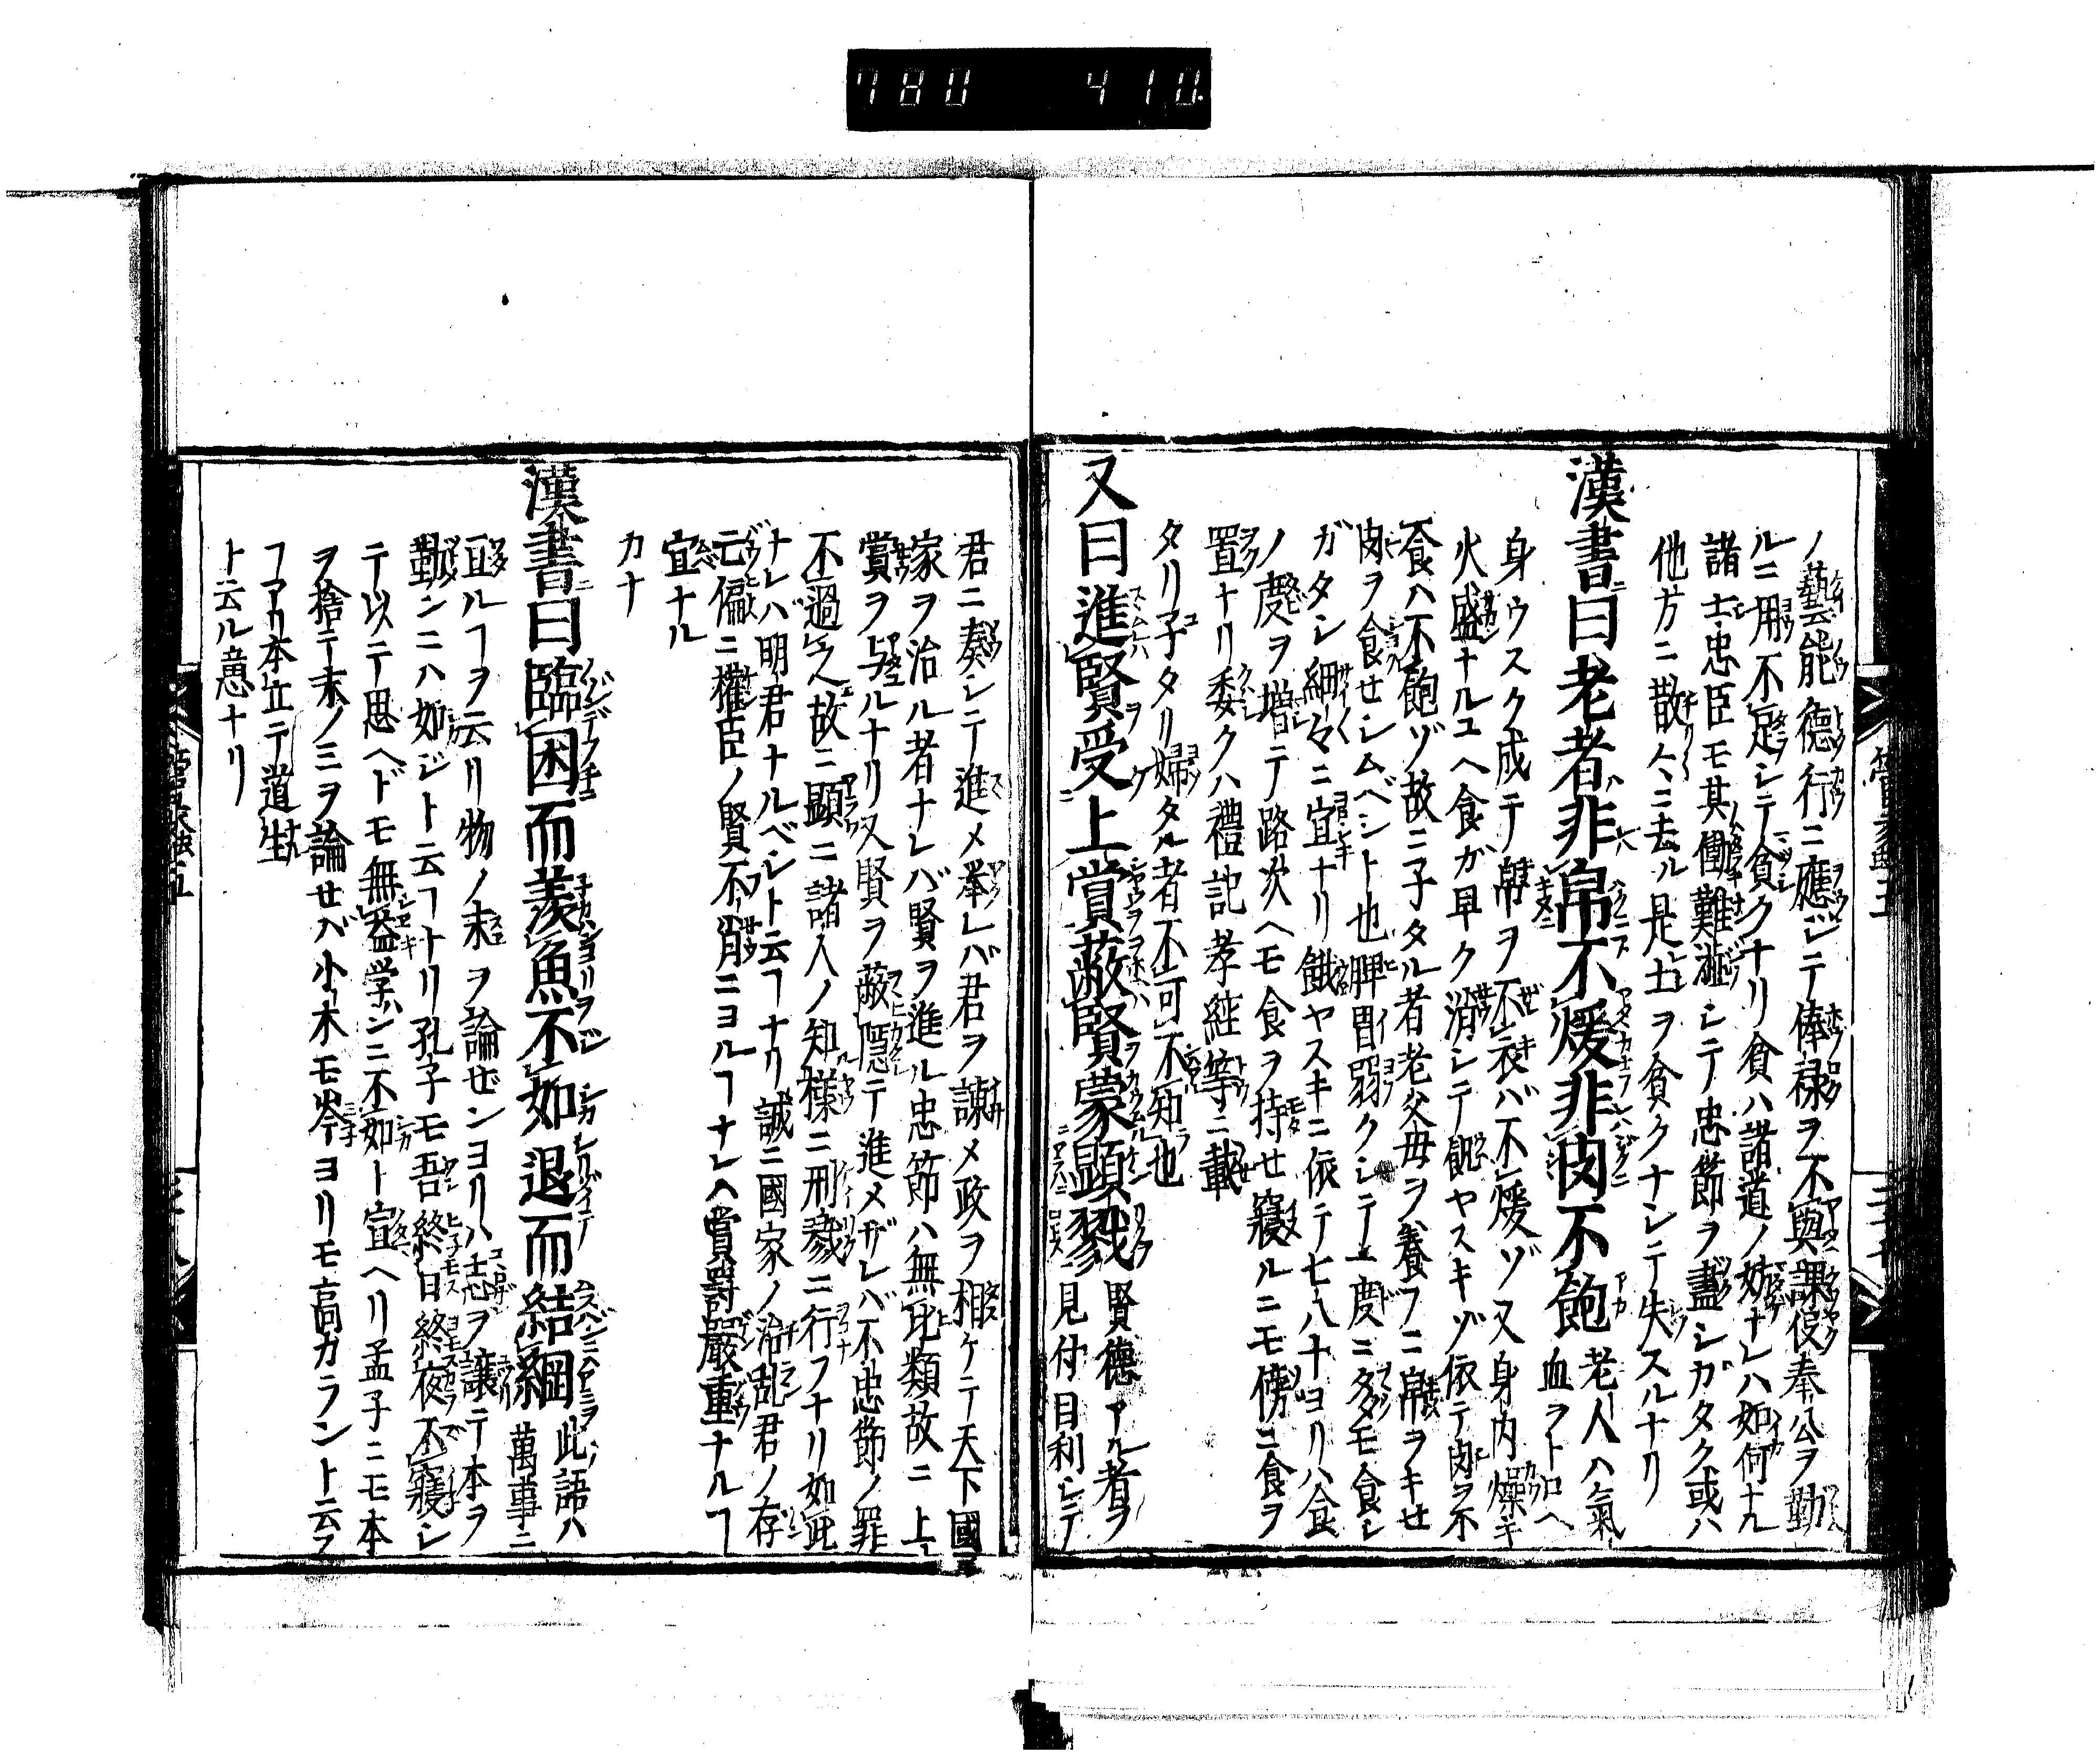 780 410
ノ藝能德行ニ應ジテ俸禄ヲ不與課役奉公ヲ勤
ルニ用不足シテ貧クナリ貧ハ諸道ノ妨ナレハ如何ナル
諸士忠臣モ其働難澁シテ忠節ヲ盡シガタク或ハ
他方ニ散々ニ去ル是士ヲ貧クナシテ失スルナリ
漢書曰老者非帛不煖非肉不飽 老人ハ氣
血ヲトロヘ
身ウスク成テ帛ヲ不衣バ不煖ヅ又身内燥キ
火盛ナルユヘ食ガ早ク消シテ飢ヤスキゾ依テ肉ヲ不
食ハ不飽ヅ故ニ子タル者老父母ヲ養フニ帛ヲキセ
肉ヲ食セシムベシト也脾胃弱クシテ一度ニ多モ食シ
ガタシ細々ニ宜ナリ餓ヤスキニ依テ七八十ヨリハ食
ノ度ヲ増テ路次ヘモ食ヲ持セ寢ルニモ傍ニ食ヲ
置ナリ委クハ禮記孝経等ニ載
タリ子タリ婦タル者不可不知也
又曰進賢受上賞蔽賢蒙顯戮 賢德アル者ヲ
見付目利シテ
君ニ奏シテ進メ挙レバ君ヲ諌メ政ヲ相ケテ天下國
家ヲ治ル者ナレバ賢ヲ進ル忠節ハ無比類故ニ上
賞ヲ与ルナリ又賢ヲ蔽隱テ進メザレバ不忠節ノ罪
不過之故ニ顯ニ諸人ノ知様ニ刑戮ニ行フナリ如此
ナレバ明君ナルベシト云フナリ誠ニ國家ノ治乱君ノ存
亡偏ニ權臣ノ賢不肖ニヨルヿナレハ賞罸嚴重ナルヿ
宜ナル
カナ
漢書曰臨困而羨魚不如退而結網 此語ハ
萬事ニ
亘ルヿヲ云リ物ノ末ヲ論ゼンヨリハ志ヲ讓テ本ヲ
勤ンニハ如ジト云ヿトリ孔子モ吾終日終夜不寢シ
テ以テ思ヘドモ無益学ンニ不如ト宣ヘリ孟子ニモ本
ヲ捨テ末ノミヲ論セバ小木モ岑ヨリモ高カラント云フ
ヿアリ本立テ道生
ト云ル意ナリ